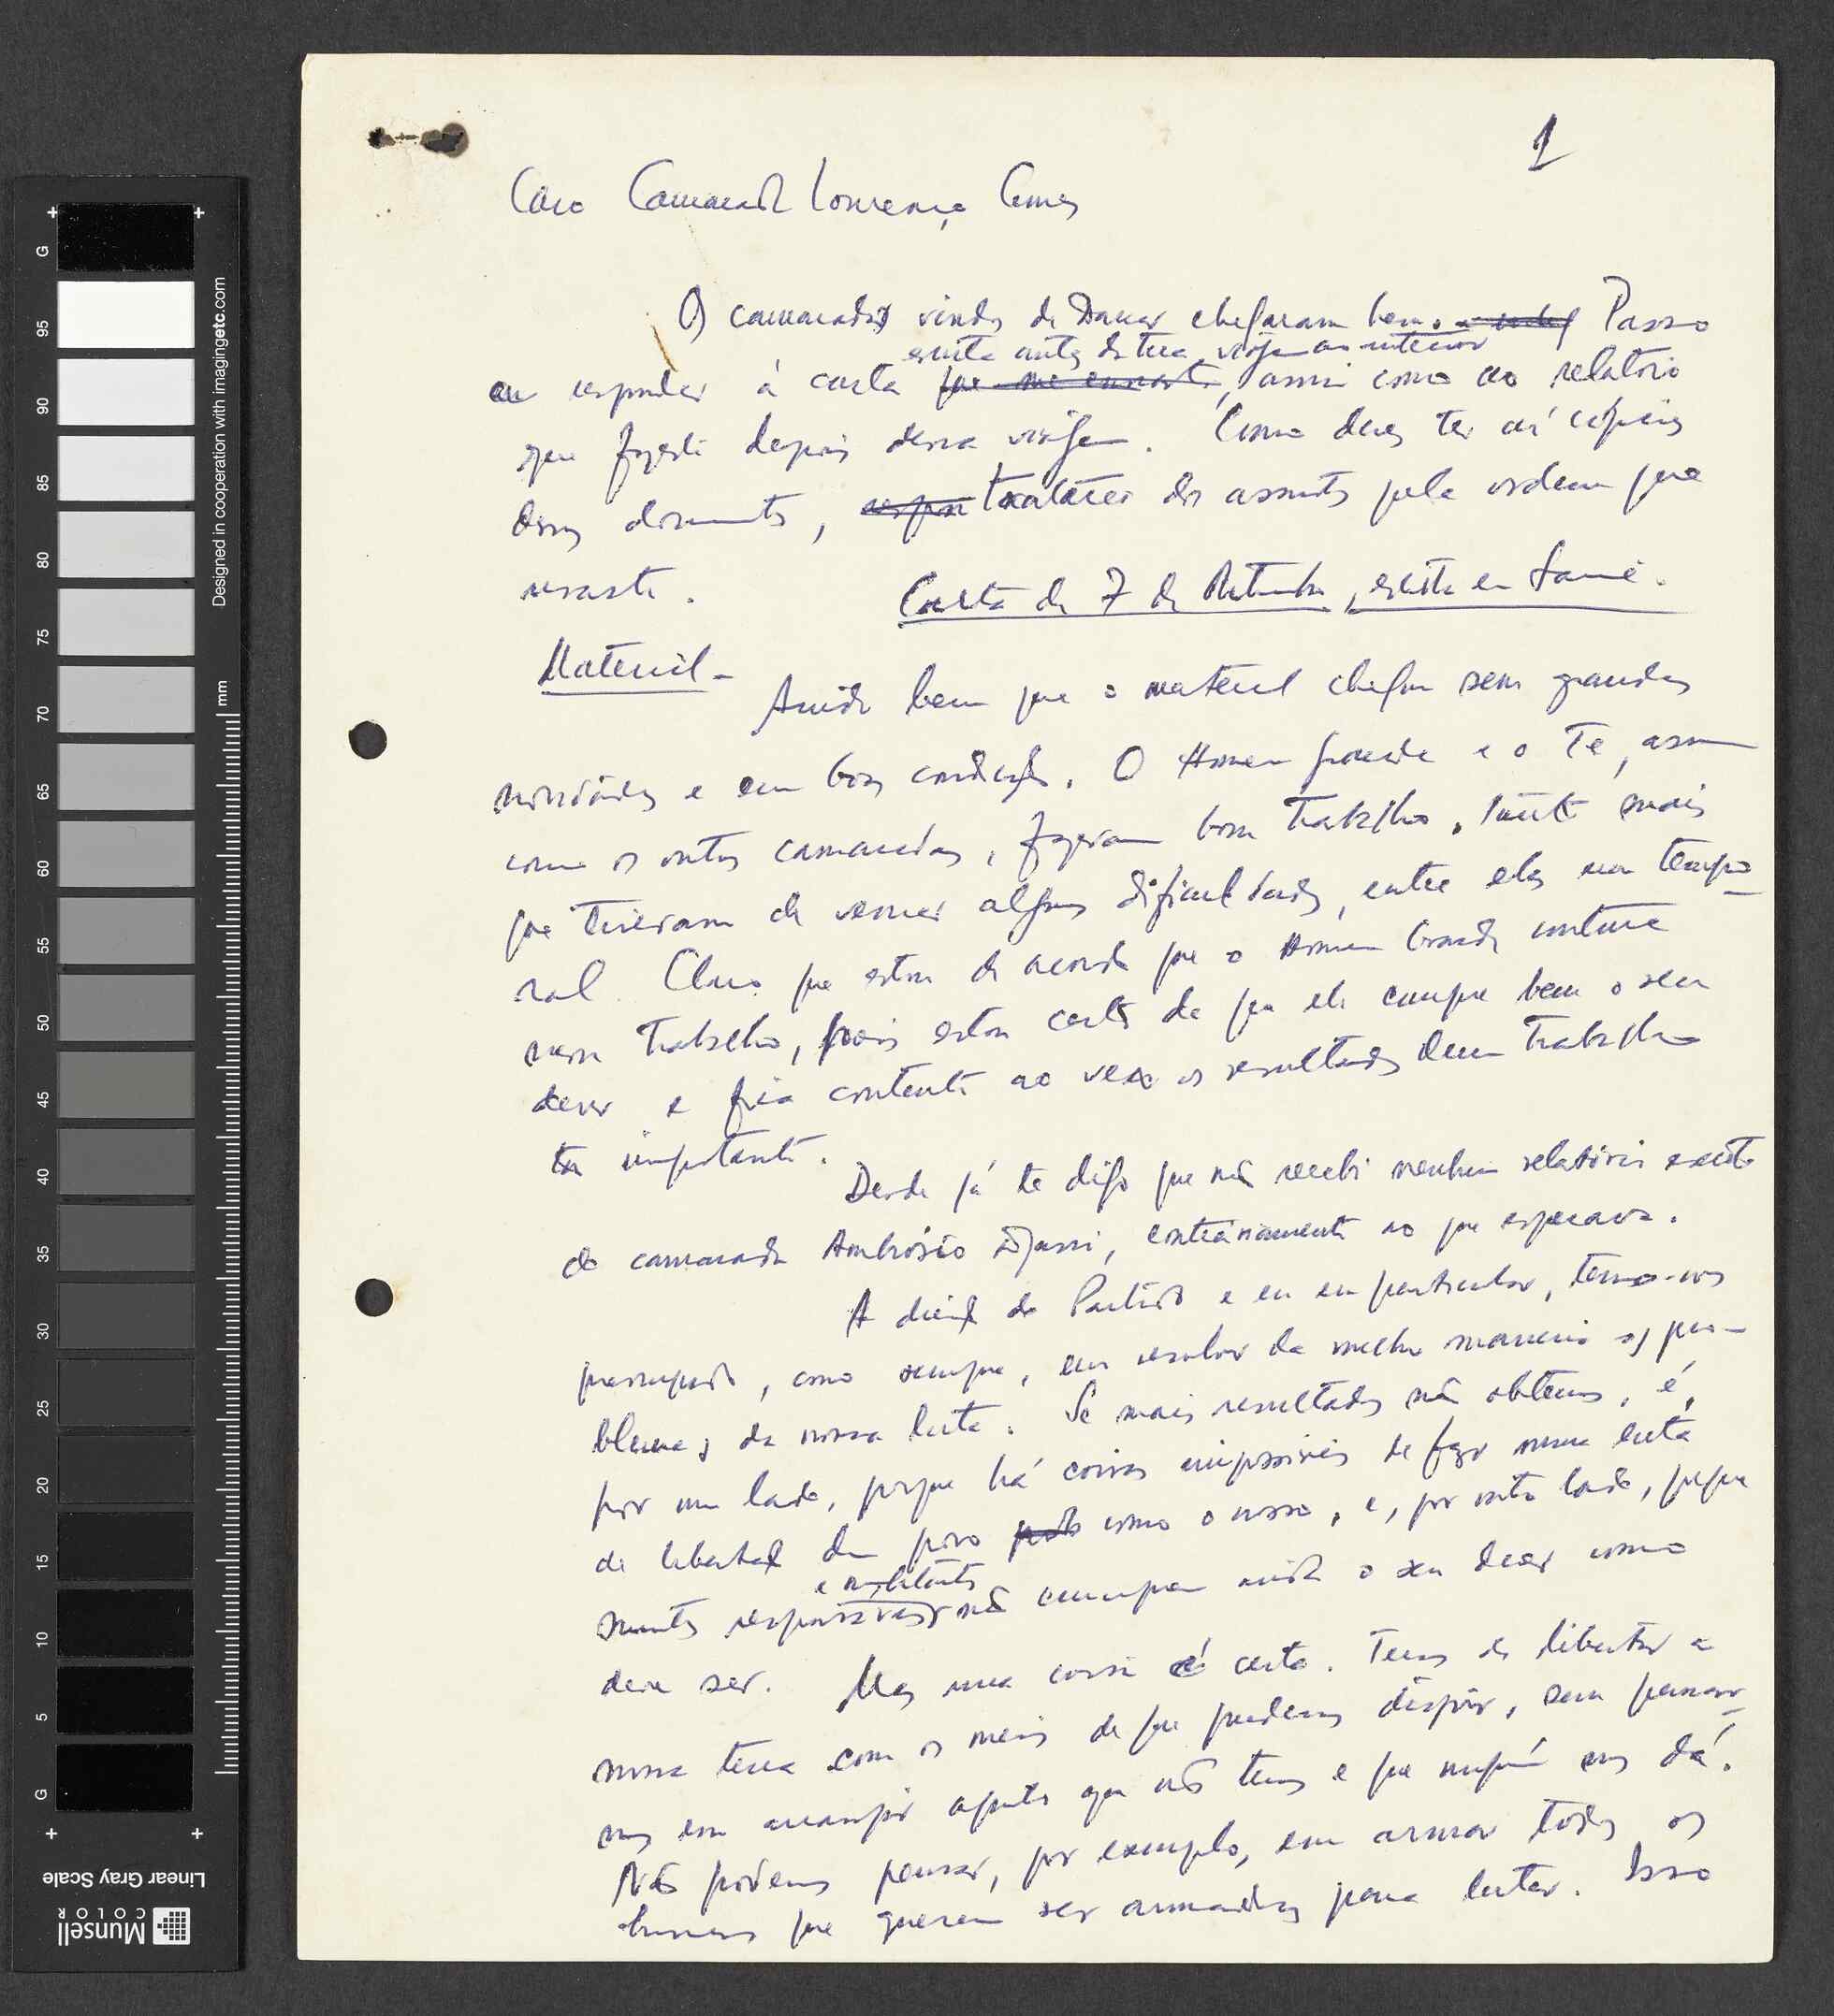 1
Caro Camarada Lourenço Gomes
Os camaradas vindos de Dacar chegaram bem. Passo
escrita antes da tua viagem ao interior
a responder à carta que me enviaste, assim como ao relatório
que fizeste depois dessa viagem. Como deves ter aí cópias
desses documentos, tratarei dos assuntos pela ordem que
usaste.
Carta de 7 de Setembro, escrita em Samé.
Material -
Ainda bem que o material chegou sem grandes
novidades e em boas condições. O Homem Grande e o Té, assim
como os outros camaradas, fizeram bom trabalho, tanto mais
que tiveram de vencer algumas dificuldades, entre elas um tempo-
ral. Claro que estou de acordo que o Homem Grande continue
nesse trabalho, pois estou certo de que ele cumpre bem o seu
dever e fica contente ao ver os resultados dum trabalho
tão importante.
Desde já te digo que não recebi nenhum relatório escrito
do camarada Ambrósio Djassi, contrariamente ao que esperava.
A direcção do Partido e eu em particular, temo-nos
preocupado, como sempre, em resolver da melhor maneira os pro-
blemas da nossa luta. Se mais resultados não obtemos, é,
por um lado, porque há coisas impossíveis de fazer numa luta
de libertação dum povo como o nosso, e, por outro lado, porque
e militantes
muitos responsáveis não cumprem ainda o seu dever como
deve ser. Mas uma coisa é certa. Temos de libertar a
nossa terra com os meios de que pudermos dispôr, sem pensar-
mos em arranjar aquilo que não temos e que ninguém nos dá.
Não podemos pensar, por exemplo, em armar todos os
homens que querem ser armados para lutar. Isso
Designed in cooperation with imagingetc.com
mm
G
95
90
85
80
75
70
65
60
55
50
45
40
35
30
25
20
15
10
5
G
Linear Gray Scale
Munsell
COLOR